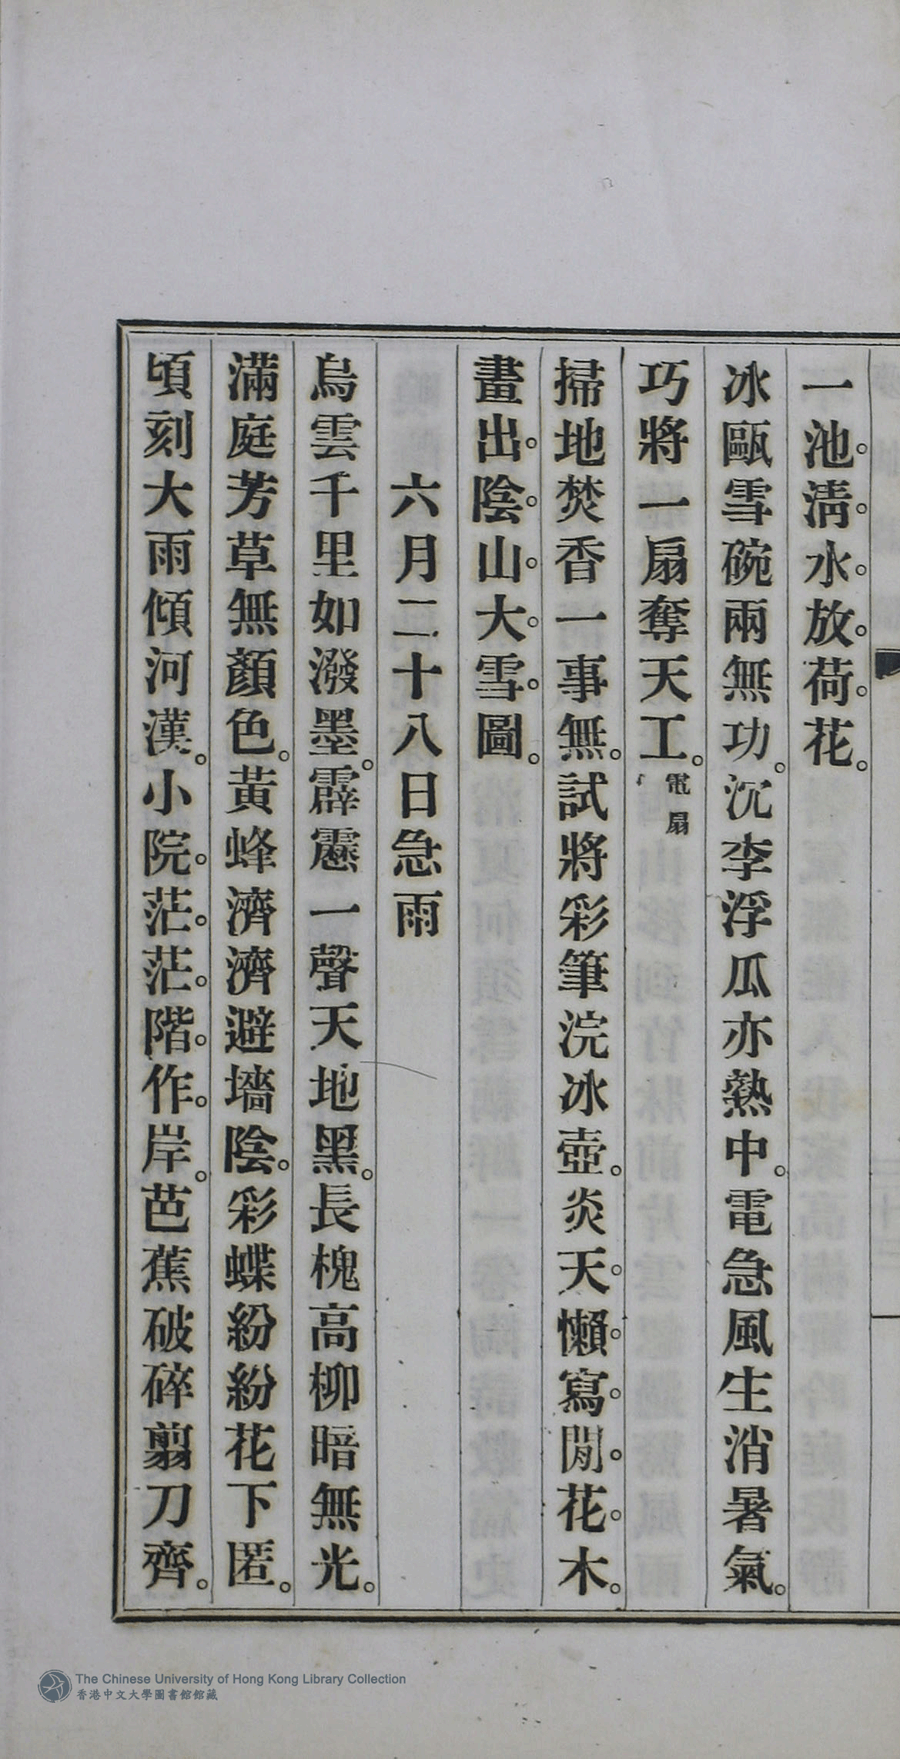 一池。清。水。放。荷。花。
冰甌雪碗兩無功。沉李浮瓜亦熱中。電急風生消暑氣。
巧將一扇奪天工。電扇
掃地焚香一事無。試將彩筆浣冰壺。炎天。懶。寫。閒。花。木。
畫出。陰。山。大。雪。圖。
六月二十八日急雨
烏雲千里如潑墨。霹靂一聲天地黑。長槐高柳暗無光。
滿庭芳草無顏色。黃蜂濟濟避墻陰。彩蝶紛紛花下匿。
頃刻大雨傾河漢。小院。茫。茫。階。作。岸。芭蕉破碎翦刀齊。
The Chinese University of Hong Kong Library Collection
香港中文大學圖書館館藏